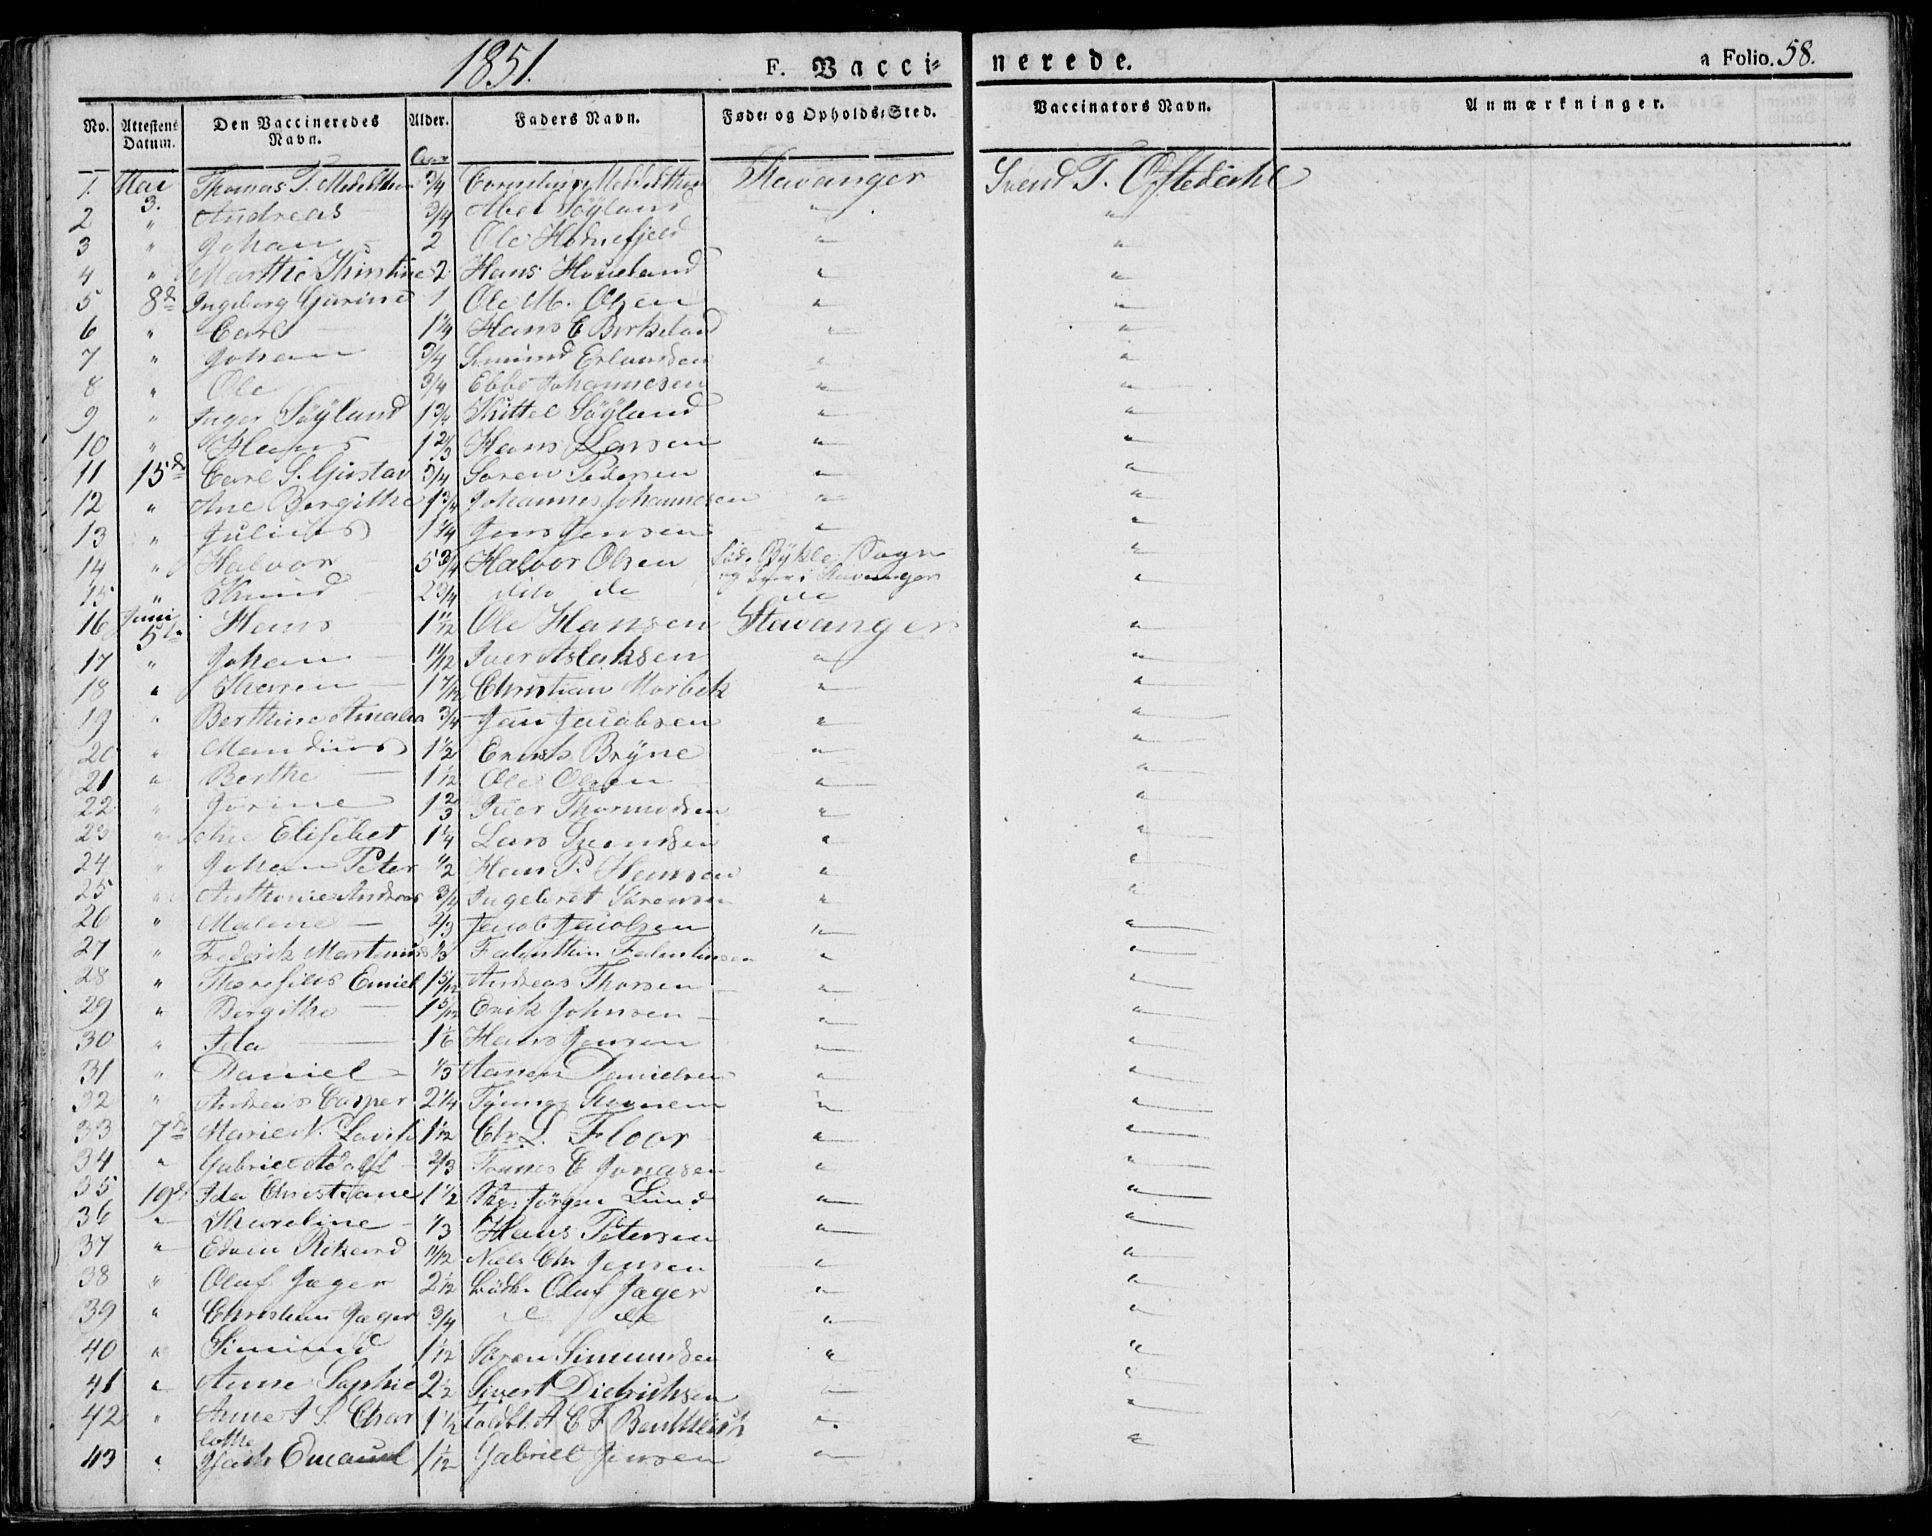 1851.
F. Vacci- nerede. a Folio. 58.
No. Attestens Datum. Den Vaccineredes Navn. Alder. Faders Navn. Føde- og Opholds-Sted. Vaccinators Navn. Anmærkninger.
1. Mai 3. Thomas T. 3/4 Stavanger Svend T. Oftedahl
2 " Andreas 3/4 Abel Söyland " "
3 " Johan 2 Ole Hodnefjeld " "
4 " Marthe Thistine 2 Hans Houeland " "
5 8de Ingeborg Gurine 1 Ole M. Olsen " "
6 " Carl 1 1/4 Hans C Birkeland " "
7 " Johan 3/4 Simund Erlandsen " "
8 " Ole 3/4 Ebbe Johannesen " "
9 " Inger Söyland 1 3/4 Kittel Söyland " "
10 " Hans 1 2/3 Hans Larsen " "
11 15de Carl S. Gustav 3/4 Søren Pedersen " "
12 " Ane Bergithe 1 3/4 Johannes Johannesen " "
13 " Julius 1 1/4 Jens Jensen " "
14 " Halvor 5 3/4 Halvor Olsen Fød. Bykle Sogn og boer i Stavanger "
15 " Knud 2 3/4 dito do do "
16 Juni 5te Hans 1 1/12 Ole Hansen Stavanger "
17 " Johan 11/12 Iver Aslaksen " "
18 " Karen 1 7/12 Christian Morbek " "
19 " Berthine Amalia 3/4 Jan Jacobsen " "
20 " Mandius 1 1/2 Eriks Bryne " "
21 " Berthe 1 1/12 Ole Olsen " "
22 " Jorine 1 2/3 Iver Thormodsen " "
23 " Ane Elisebet 1 1/4 Lars Svendsen " "
24 " Johan Peter 1/2 Hans P. Hansen " "
25 " Anthonie Andreas 3/4 Ingebret Sörensen " "
26 " Maline 2/3 Jacob Jacobsen " "
27 " Frederik Martinius 1/3 Falenthin Falentinsen " "
28 " Emiel 1 5/12 Andreas Thorsen " "
29 " Bergithe 1 5/12 Erik Johnsen " "
30 " Ida 1 1/6 Hans Jensen " "
31 " Daniel 1/3 Aanen Danielsen " "
32 " Andreas Casper 2 1/4 " "
33 7de Marie N. Lavise 1 1/12 Chr. L. Floor " "
34 " Gabriel Adolf 2/3 Tønnes E Jonasen " "
35 19de Ida Christiane 1 1/2 Jörgen Lund " "
36 " Kareline 1/3 Hans Petersen " "
37 " Edvin Rikard 11/12 Niels Chr Jensen " "
38 " Oluf Jæger 2 1/12 Oluf Jæger " "
39 " Christian Jæger 3/4 do do " "
40 " Simund 1 1/12 Sören Simundsen " "
41 " Anne Sophie 2 1/2 Sivert Didrichsen " "
42 " Anne A S. Charlothe 1 1/2 Toldbt. A C F " "
43 " Emanuel 1 1/12 Gabriel Jensen " "